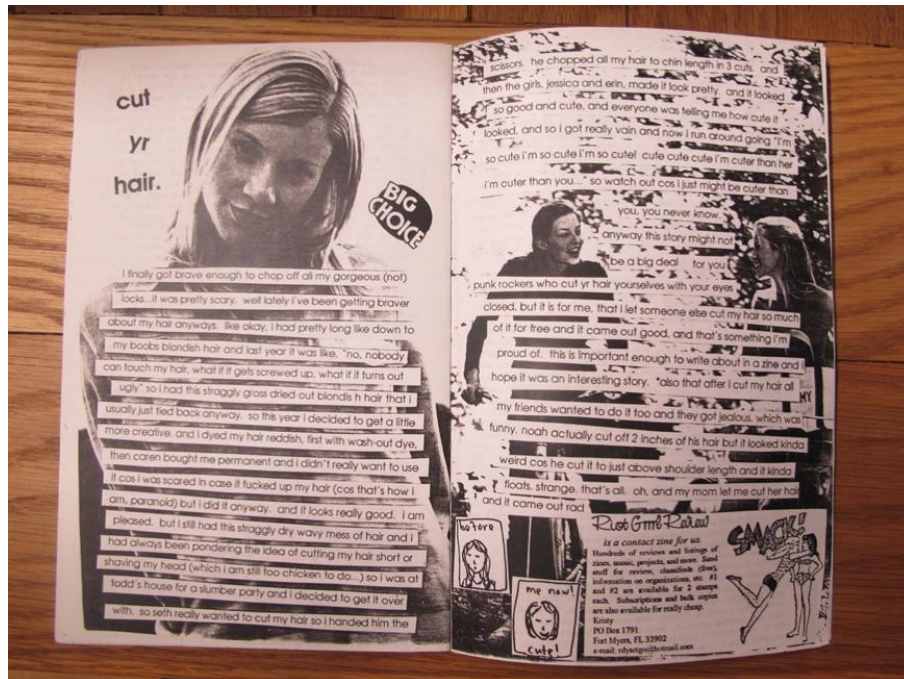 cut
yr
hair.
BIG
CHOICE
I finally got brave enough to chop off all my gorgeous (not)
locks...it was pretty scary. well lately i've been getting braver
about my hair anyways. like okay, i had pretty long like down to
my boobs blondish hair and last year it was like, "no, nobody
can touch my hair, what if it gets screwed up, what if it turns out
ugly" so i had this straggly gross dried out blondis h hair that i
usually just tied back anyway. so this year i decided to get a little
more creative. and i dyed my hair reddish, first with wash-out dye,
then caren bought me permanent and i didn't really want to use
it cos i was scared in case it fucked up my hair (cos that's how i
am, paranoid) but i did it anyway. and it looks really good. i am
pleased. but i still had this straggly dry wavy mess of hair and i
had always been pondering the idea of cutting my hair short or
shaving my head (which i am still too chicken to do...) so i was at
todd's house for a slumber party and i decided to get it over
with. so seth really wanted to cut my hair so i handed him the
scissors. he chopped all my hair to chin length in 3 cuts. and
then the girls, jessica and erin, made it look pretty. and it looked
so good and cute, and everyone was telling me how cute it
looked, and so i got really vain and now i run around going "i'm
so cute i'm so cute i'm so cute! cute cute cute i'm cuter than her
i'm cuter than you..." so watch out cos i just might be cuter than
you, you never know.
anyway this story might not
be a big deal for you
punk rockers who cut yr hair yourselves with your eyes
closed, but it is for me, that i let someone else cut my hair so much
of it for free and it came out good, and that's something i'm
proud of. this is important enough to write about in a zine and i
hope it was an interesting story. *also that after i cut my hair all
MY
my friends wanted to do it too and they got jealous, which was
funny. noah actually cut off 2 inches of his hair but it looked kinda
weird cos he cut it to just above shoulder length and it kinda
floats. strange. that's all. oh, and my mom let me cut her hair
and it came out rad
before
me now!
cute!
Riot Grrrl Review
is a contact zine for us.
Hundreds of reviews and listings of
zines, music, projects, and more. Send
stuff for review, classifieds (free),
information on organizations, etc. #1
and #2 are available for 2 stamps
each. Subscriptions and bulk copies
are also available for really cheap.
Kristy
PO Box 1791
Fort Myers, FL 33902
SMACK!